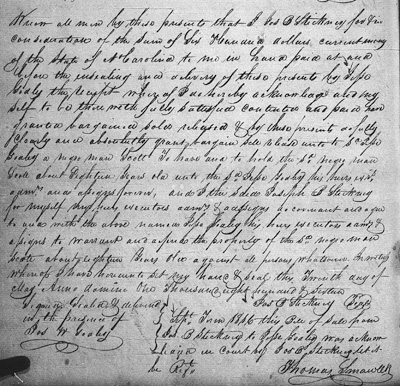 Know all men by these presents that I Jos B Stickney for & in
consideration of the Sum of Six Hundred dollars current money
of the State of N Carolina to me in hand paid at and
before the unsealing and delivery of these presents by Jesse
the Receipt whereof I do hereby acknowledge and my
self to be therewith fully satisfied contented and paid have
granted bargained sold released & by these presents do fully
Clearly and absolutely grant, bargain sell release unto Sd Jesse
a negro man Scote To have and to hold the Sd Negro man
Scote about Eighteen Years old unto the Sd Jesse his heirs exrs
admrs and assigns forever, and I the Said Joseph B Stickney
for myself my heirs executors admrs & assigns do covenant and agree
to and with the above named Jesse his heirs executors admrs &
assigns to warrant and defend the property of the Sd negro man
Scote about eighteen Years Old against all persons whatsoever In witness
whereof I have hereunto Set my hand & Seal this day of
May Anno domini One Thousand eight hundred &
Signed Sealed & delivered Jos B Stickney Seal
in the presence of
Jos W
Term 1816 this Bill of Sale from
Jos B Stickney to Jesse was acknow
ledged in Court by Jos B Stickney &
be Regd
Thomas